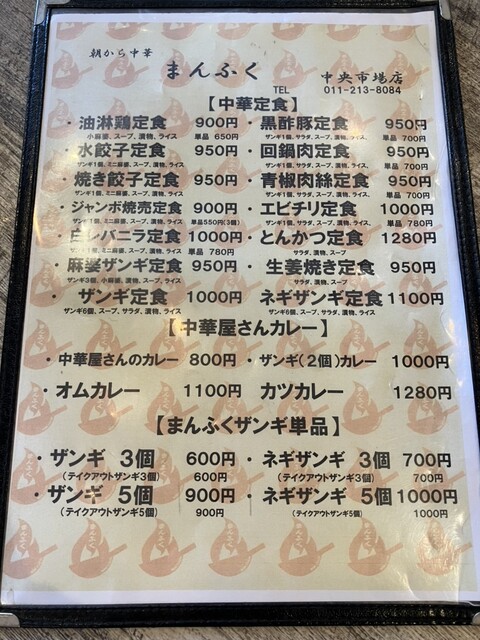 朝から中華
まんふく 中央市場店
TEL 011-213-8084
【中華定食】
・油淋鶏定食 900円 ・黒酢豚定食 950円
小麻婆、スープ、漬物、ライス 単品 650円 ザンギ1個、スープ、サラダ、漬物、ライス 単品 700円
・水餃子定食 950円 ・回鍋肉定食 950円
ザンギ1個、ミニ麻婆、スープ、漬物、ライス ザンギ1個、スープ、サラダ、漬物、ライス 単品 700円
・焼き餃子定食 950円 ・青椒肉絲定食 950円
ザンギ1個、ミニ麻婆、スープ、漬物、ライス ザンギ1個、スープ、サラダ、漬物、ライス 単品 700円
・ジャンボ焼売定食 900円 ・エビチリ定食 1000円
ザンギ1個、ミニ麻婆、スープ、漬物、ライス 単品550円(3個) ザンギ1個、スープ、サラダ、漬物、ライス 単品 780円
・白レバニラ定食 1000円 ・とんかつ定食 1280円
ザンギ1個、ミニ麻婆、スープ、漬物、ライス 単品 780円 サラダ、漬物、スープ
・麻婆ザンギ定食 950円 ・生姜焼き定食 950円
ザンギ3個、小麻婆、スープ、漬物、ライス サラダ、漬物、スープ
・ザンギ定食 1000円 ネギザンギ定食 1100円
ザンギ6個、スープ、サラダ、漬物、ライス ザンギ6個、スープ、サラダ、漬物、ライス
【中華屋さんカレー】
・中華屋さんのカレー 800円 ・ザンギ(2個)カレー 1000円
・オムカレー 1100円 カツカレー 1280円
【まんふくザンギ単品】
・ザンギ 3個 600円 ・ネギザンギ 3個 700円
(テイクアウトザンギ3個) 600円 (テイクアウトザンギ3個) 700円
・ザンギ 5個 900円 ・ネギザンギ 5個 1000円
(テイクアウトザンギ5個) 900円 (テイクアウトザンギ5個) 1000円